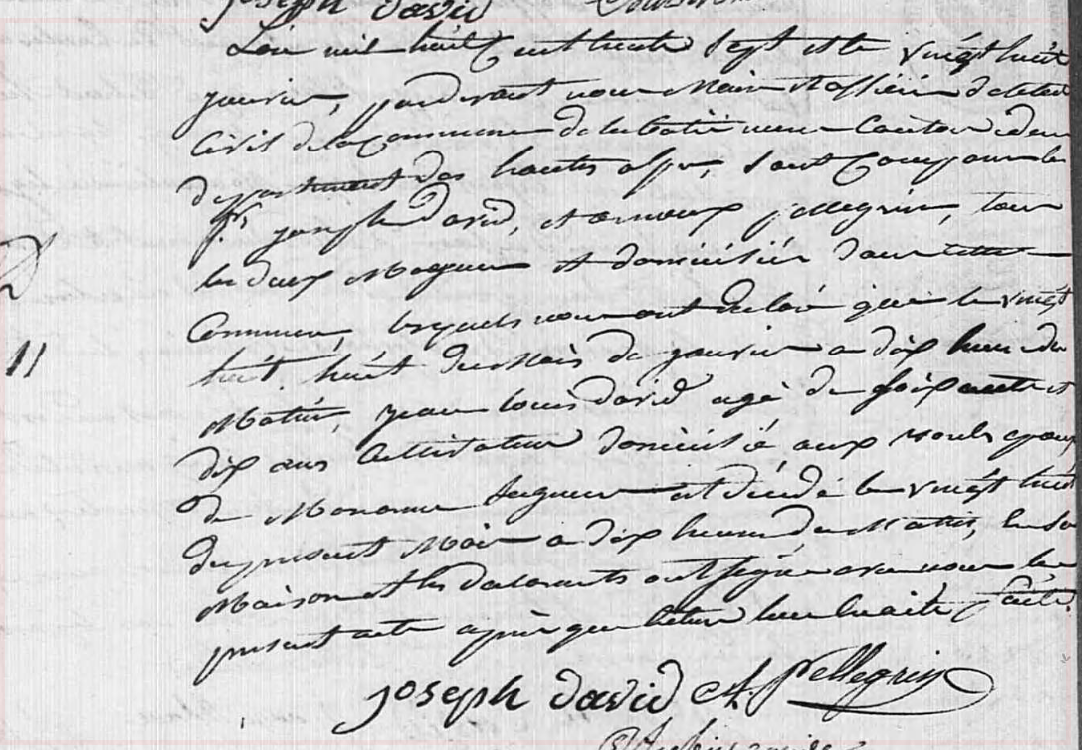 joseph david
L'an mil huit cent trente sept et le vingt huit
janvier, pardevant nous Maire et officier de l'etat
Civil de la Commune de la batie neuve Canton idem
departement des hautes alpes, sont Comparu les
Srs joseph david, et arnoux pellegrin, tous
les deux Majeurs et domiciliés dans cette
Commune, lesquels nous ont declaré que le vingt
huit huit du Mois de janvier a dix heures du
Matin, jean louis david agé de soixante et
dix ans Cultivateur domicilié aux epoux
de Marianne est décédé le vingt huit
du present Mois a dix heures du Matin, en sa
Maison et les declarants ont signé avec nous le
present acte après que lecture leur en a été faite.
joseph david A. Pellegrin